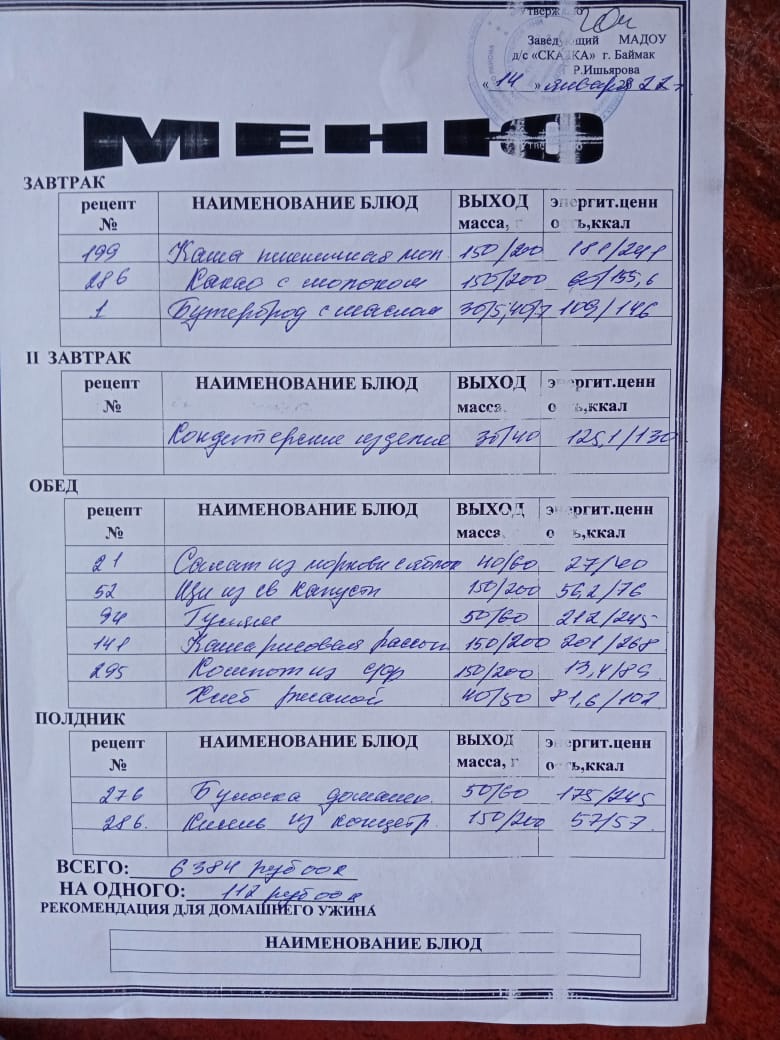 Утверждаю
Заведующий МАДОУ
д/с «СКАЗКА» г. Баймак
Р.Ишьярова
«14» января 2022г
МЕНЮ
ЗАВТРАК
рецепт № НАИМЕНОВАНИЕ БЛЮД ВЫХОД масса, г энергит.ценность,ккал
199 Каша пшеничная мол. 150/200
286 Какао с молоком 150/200
1 Бутерброд с маслом 30/5,40/7 109/146
II ЗАВТРАК
рецепт № НАИМЕНОВАНИЕ БЛЮД ВЫХОД масса, энергит.ценность,ккал
Кондитерские изделие 30/40 125,1/130
ОБЕД
рецепт № НАИМЕНОВАНИЕ БЛЮД ВЫХОД масса, энергит.ценность,ккал
21 Салат из моркови с яблок 40/60 27/40
52 Щи из св капусты 150/200 56,2/76
94 50/60 212/245
141 Каша рисовая рассып 150/200 201/268
295 Компот из с/фр 150/200
Хлеб ржаной 40/50 81,6/102
ПОЛДНИК
рецепт № НАИМЕНОВАНИЕ БЛЮД ВЫХОД масса, г энергит.ценность,ккал
276 Булочка домашн. 50/60 175/245
286. Кисель из концетр. 150/200 57/57
ВСЕГО: 6384 рубоок
НА ОДНОГО: 112 рубоок
РЕКОМЕНДАЦИЯ ДЛЯ ДОМАШНЕГО УЖИНА
НАИМЕНОВАНИЕ БЛЮД